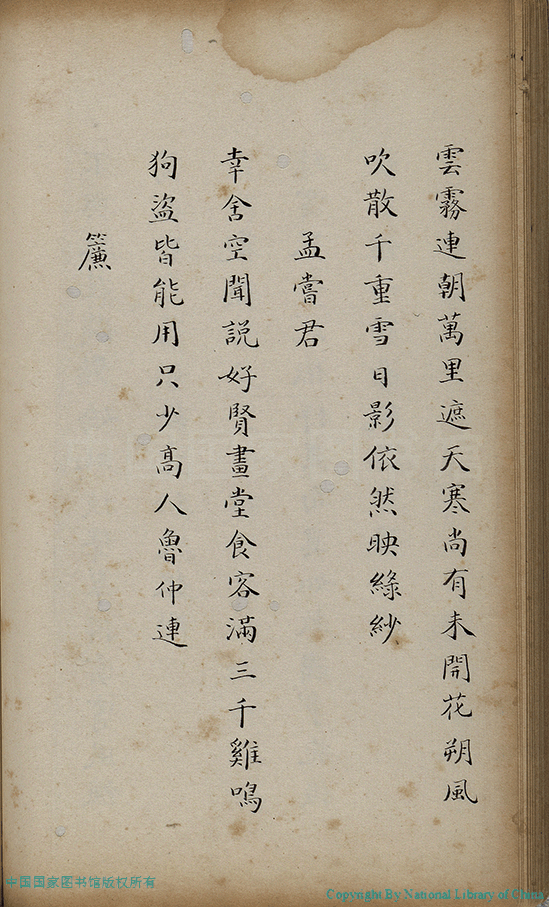 雲霧連朝萬里遮天寒尚有未開花朔風
吹散千重雪日影依然映綠紗
孟嘗君
幸舍空聞説好賢畫堂食客滿三千雞鳴
狗盜皆能用只少高人魯仲連
簾
中国国家图书馆版权所有
Copyright By National Library of China